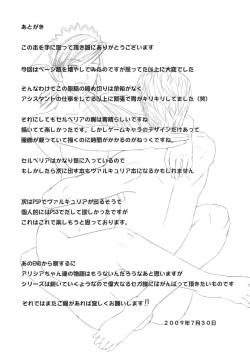 あとがき
この本を手に取って頂き誠にありがとうございます
今回はページ数を増やしてみるのですが思ってた以上に大変でした
そんなわけでこの原稿の締め切りは余裕がなく
アシスタントの仕事をしてる以上に緊張で胃がキリキリしてました（笑）
それにしてもセルベリアの胸は素晴らしいですね
描いてて楽しかったです、しかしゲームキャラのデザインだけあって
服飾が凝っていて描くのに時間がかかるのがねっくですね。
セルベリアはかなり気に入っているので
もしかしたら次に出す本もヴァルキュリア本になるかもしれません
次はPSPでヴァルキュリアが出るそうで
個人的にはPS3でだして欲しかったですが
これはこれで楽しもうと思っております。
あのENDから察するに
アリシアちゃん達の物語はもうないんだろうなあと思いますが
シリーズは続いていくようなので偉大なるセガ様にはがんばって頂きたいものです
それではまたご縁があれば宜しくお願いします!!
2009年7月30日